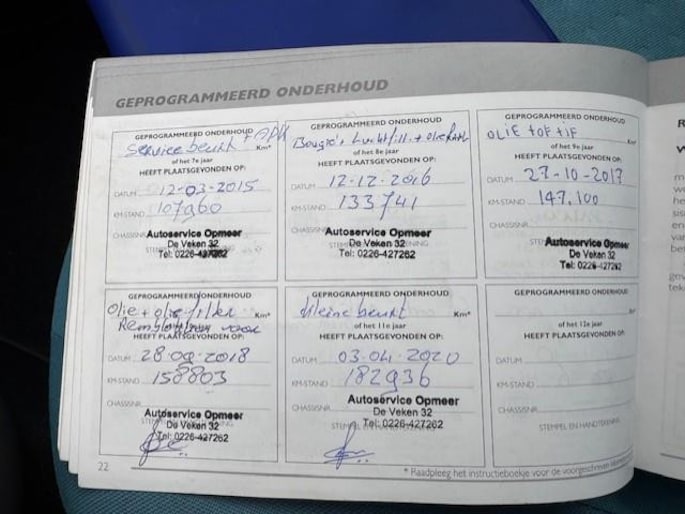 GEPROGRAMMEERD ONDERHOUD
GEPROGRAMMEERD ONDERHOUD
Servicebeurt + APK Km*
of het 7e jaar
HEEFT PLAATSGEVONDEN OP:
DATUM 12-03-2015
KM-STAND 107960
CHASSISNR.
Autoservice Opmeer
De Veken 32
Tel: 0226-427262
GEPROGRAMMEERD ONDERHOUD
Bougie's Luchtfilt. +
of het 8e jaar
HEEFT PLAATSGEVONDEN OP:
DATUM 12-12-2016
KM-STAND 133741
CHASSISNR.
Autoservice Opmeer
De Veken 32
Tel: 0226-427262
GEPROGRAMMEERD ONDERHOUD
OLIE + OF + IF
of het 9e jaar Km*
HEEFT PLAATSGEVONDEN OP:
DATUM 27-10-2017
KM-STAND 147.100
CHASSISNR.
Autoservice Opmeer
De Veken 32
Tel: 0226-427262
GEPROGRAMMEERD ONDERHOUD
Olie + oliefilter Km*
voor
HEEFT PLAATSGEVONDEN OP:
DATUM 28-09-2018
KM-STAND 158803
CHASSISNR.
Autoservice Opmeer
De Veken 32
Tel: 0226-427262
GEPROGRAMMEERD ONDERHOUD
kleine beurt Km*
of het 11e jaar
HEEFT PLAATSGEVONDEN OP:
DATUM 03-04-2020
KM-STAND 182936
CHASSISNR.
Autoservice Opmeer
De Veken 32
Tel: 0226-427262
GEPROGRAMMEERD ONDERHOUD
Km*
of het 12e jaar
HEEFT PLAATSGEVONDEN OP:
DATUM
KM-STAND
CHASSISNR.
STEMPEL EN HANDTEKENING
22
* Raadpleeg het instructieboekje voor de voorgeschreven